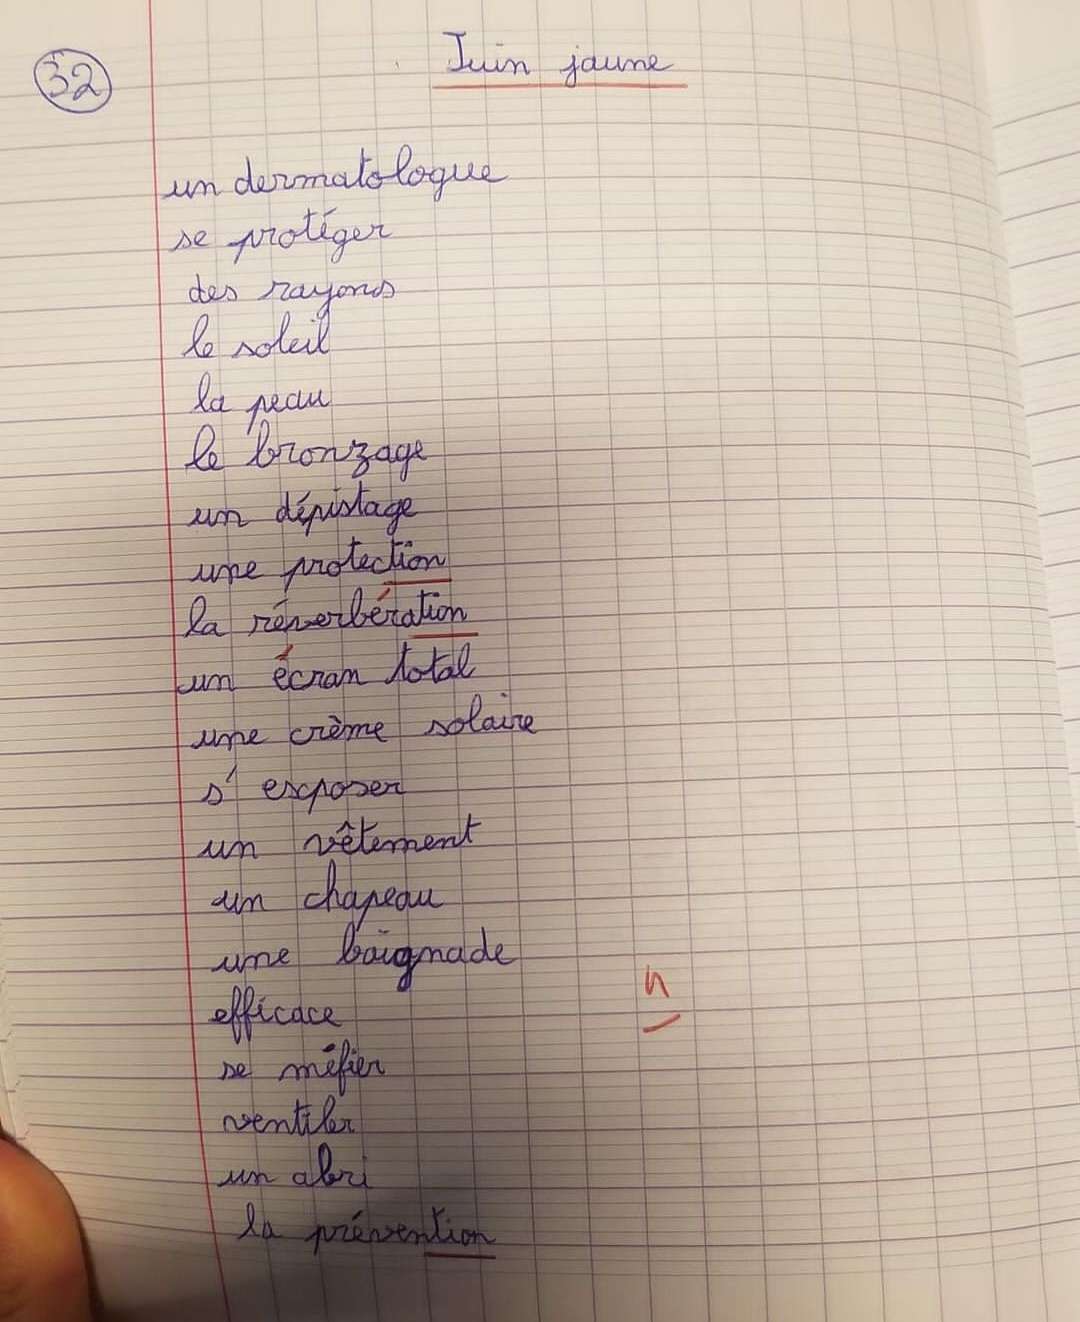 32
Juin jaune
un dermatologue
se protéger
des rayons
le soleil
la peau
le bronzage
un dépistage
une protection
la réverbération
un écran total
une crème solaire
s'exposer
un vêtement
un chapeau
une baignade
n
efficace
se méfier
ventiler
un abri
la prévention